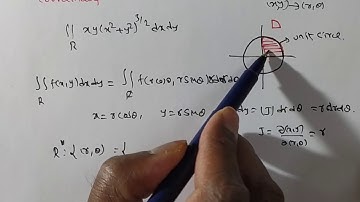 (x,y) → (r,θ)
∬_R xy(x²+y²)^{3/2} dxdy
unit circle
∬_R f(x,y)dxdy = ∬ f(r cosθ, r sinθ)
x = r cosθ, y = r sinθ dy = |J| dr dθ = r dr dθ.
J = ∂(x,y)/∂(r,θ) = r
R* : { (r,θ) = {